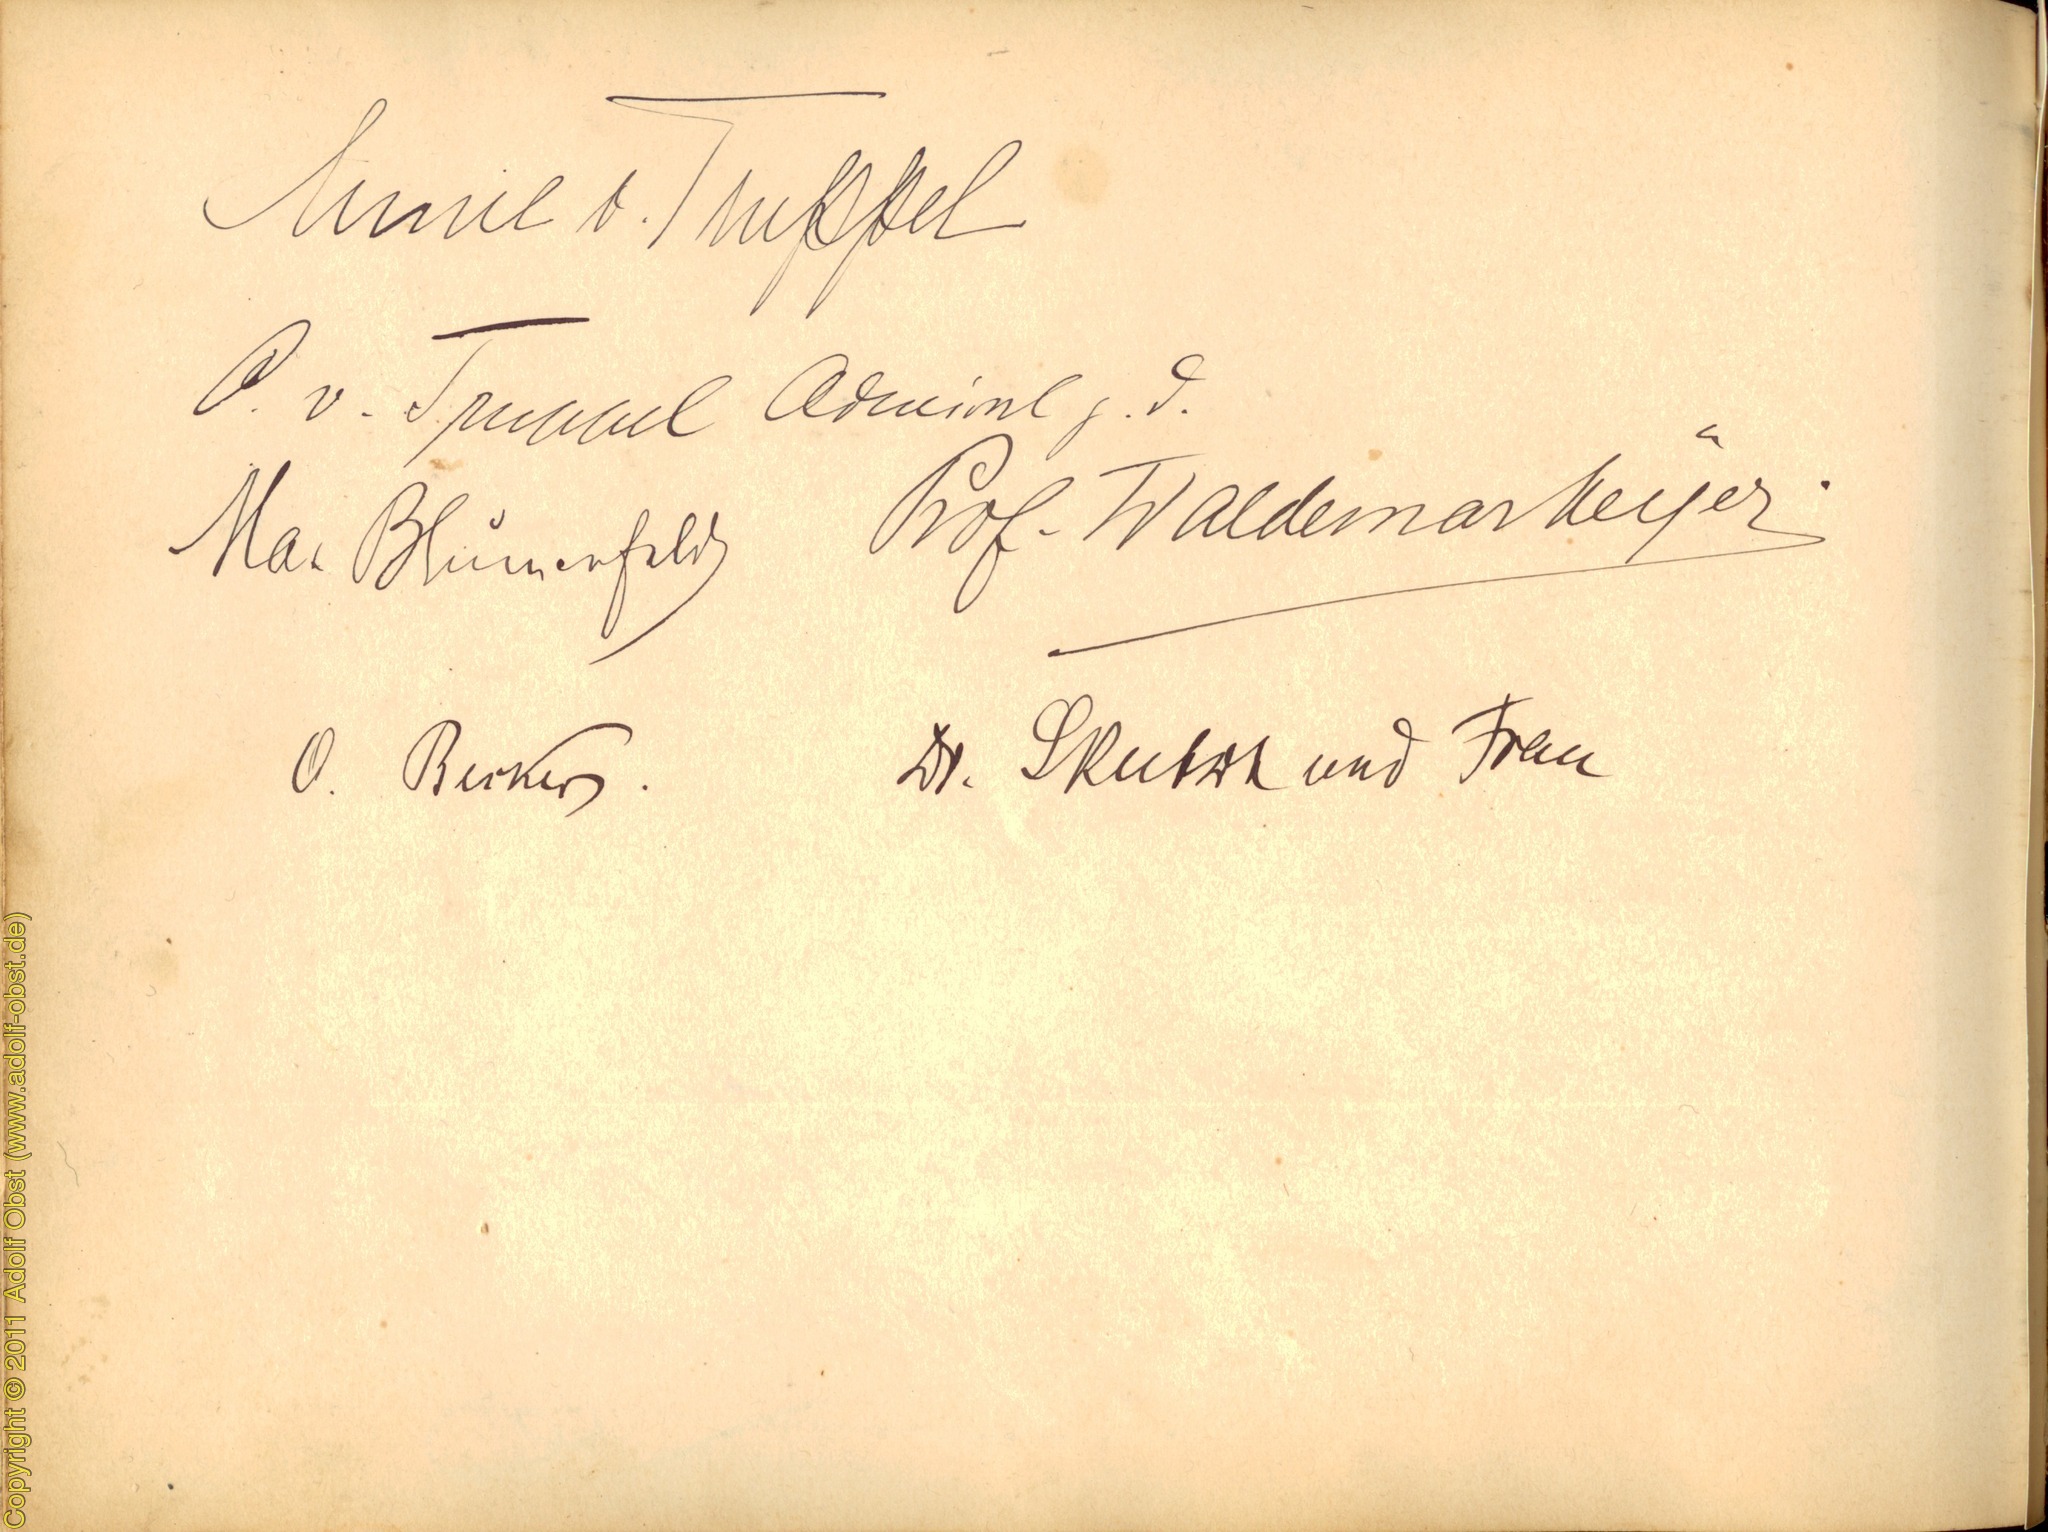 Annie v. Truppel
O. v. Truppel Admiral z. D.
Max Blumenfeld
Prof. Waldemar Meyer.
O. Beckers.
Dr. Skutsch und Frau
Copyright © 2011 Adolf Obst (www.adolf-obst.de)